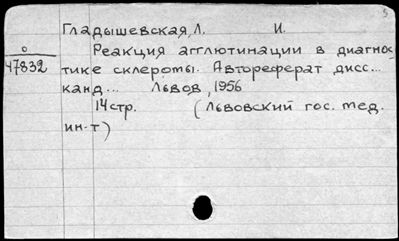 Гладышевская, Л. И.
о
47832
Реакция агглютинации в диагнос-
тике склеромы. Автореферат дисс...
канд... Львов, 1956
14 стр. (Львовский гос. мед.
ин-т)